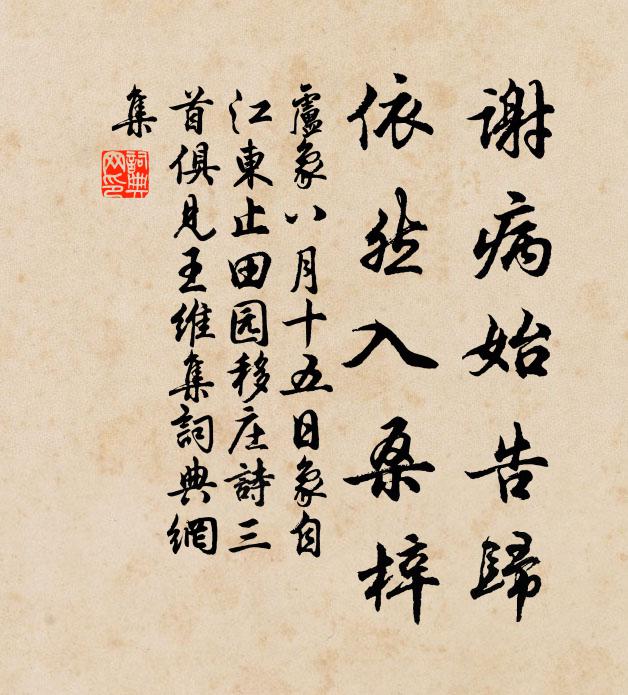 謝病始告歸
依然入桑梓
盧象八月十五日象自
江東止田园移庄詩三
首俱見王維集詞典網
集
詞典網印